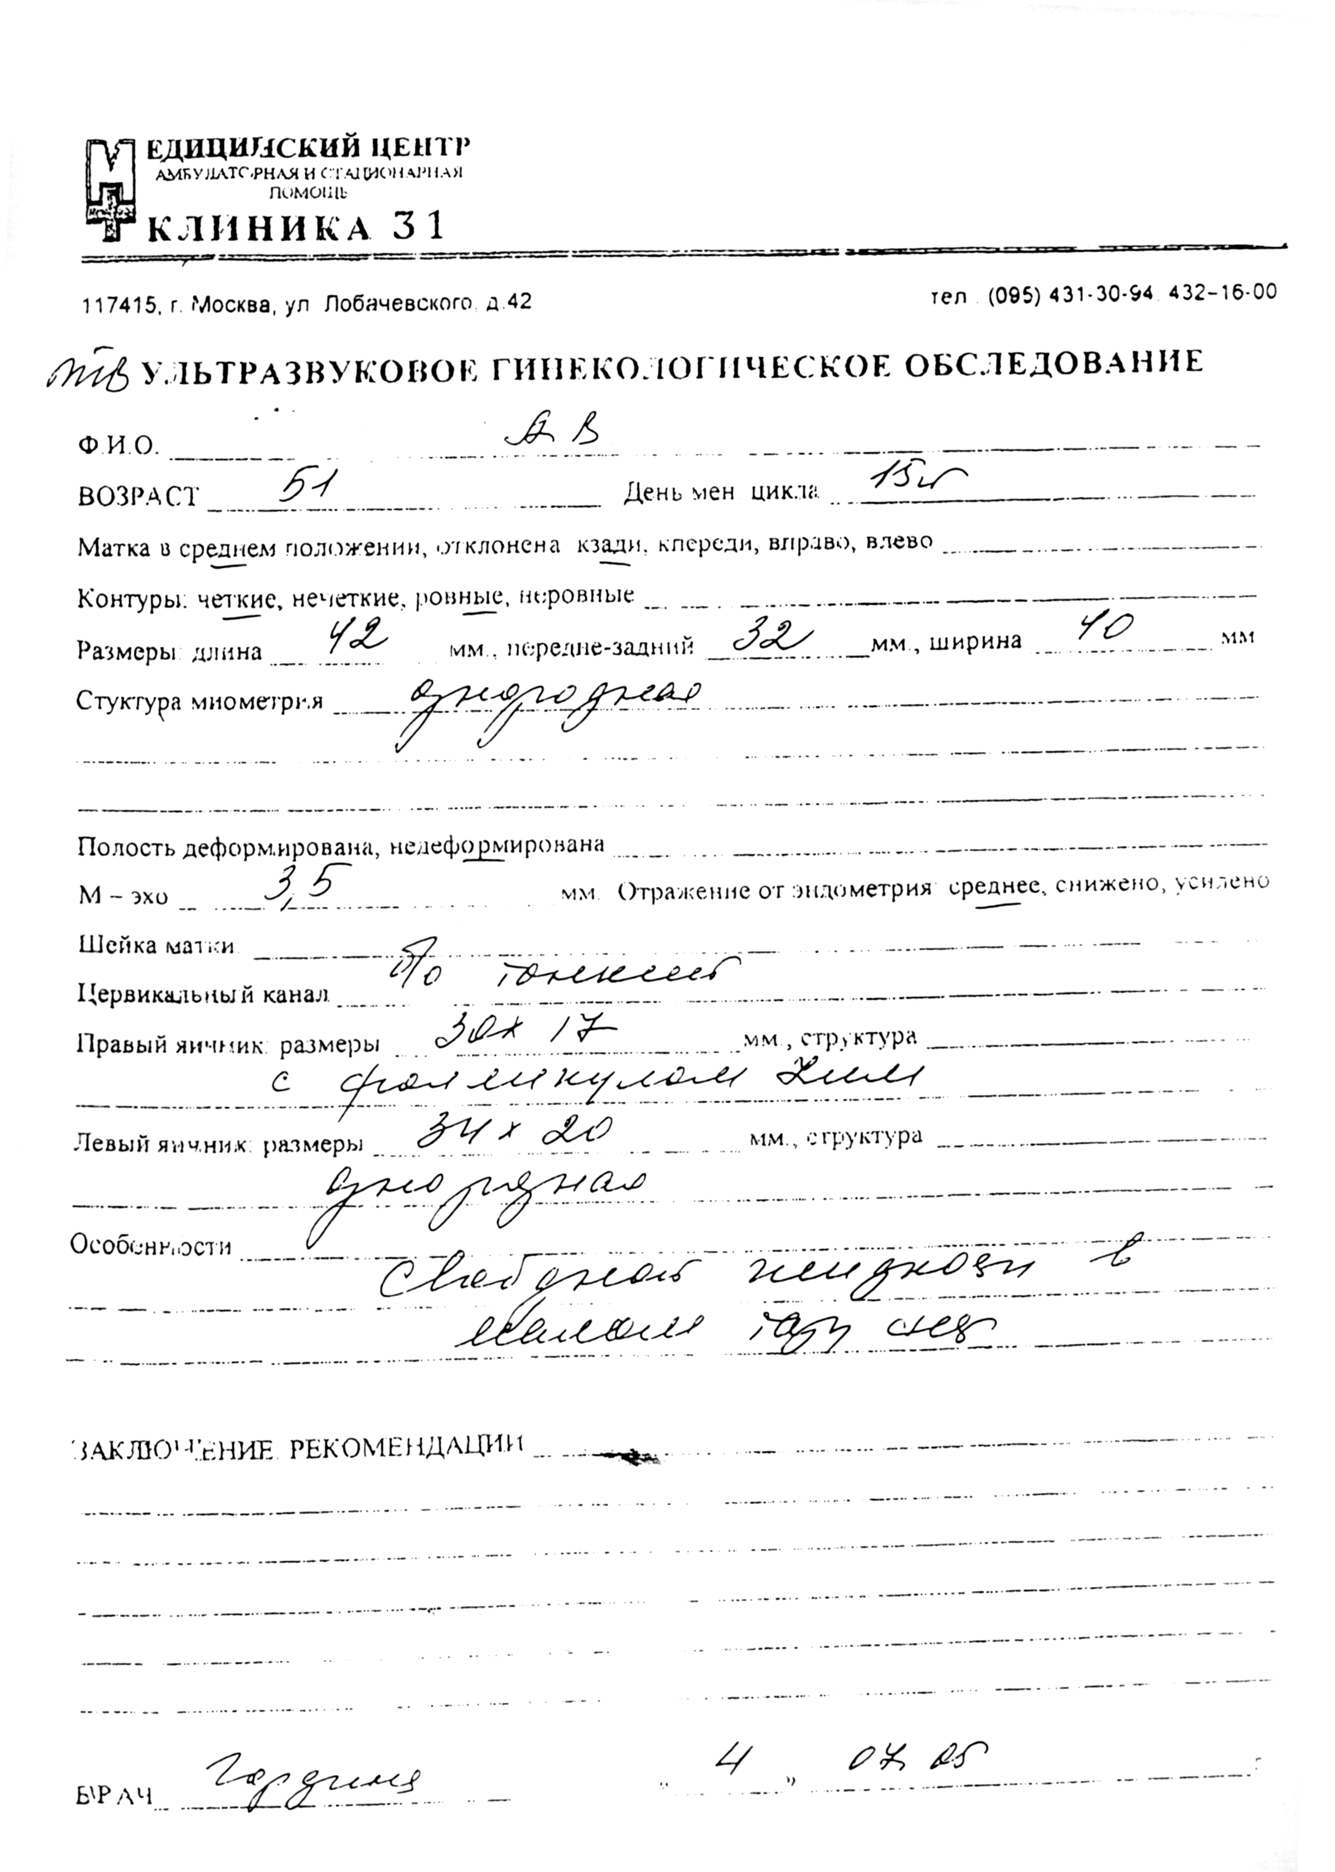 МЕДИЦИНСКИЙ ЦЕНТР
АМБУЛАТОРНАЯ И СТАЦИОНАРНАЯ
ПОМОЩЬ
КЛИНИКА 31
117415, г. Москва, ул Лобачевского, д.42 тел. (095) 431-30-94, 432-16-00
УЛЬТРАЗВУКОВОЕ ГИНЕКОЛОГИЧЕСКОЕ ОБСЛЕДОВАНИЕ
Ф.И.О. А В
ВОЗРАСТ 51 День мен цикла 15й
Матка в среднем положении, отклонена кзади, кпереди, вправо, влево
Контуры: четкие, нечеткие, ровные, неровные
Размеры: длина 42 мм., передне-задний 32 мм., ширина 40 мм
Стуктура миометрия однородная
Полость деформирована, недеформирована
М – эхо 3,5 мм. Отражение от эндометрия: среднее, снижено, усилено
Шейка матки
Цервикальный канал тонкий
Правый яичник: размеры 30х 17 мм., структура
с фолликулом
Левый яичник: размеры 34 х 20 мм., структура
однородная
Особенности
Свободной жидкости в
малом тазу нет
ЗАКЛЮЧЕНИЕ. РЕКОМЕНДАЦИИ
ВРАЧ Гордина " 4 " 07 05